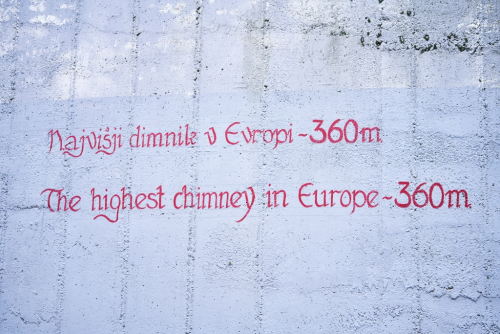 Najvišji dimnik v Evropi ~ 360m
The highest chimney in Europe ~ 360m